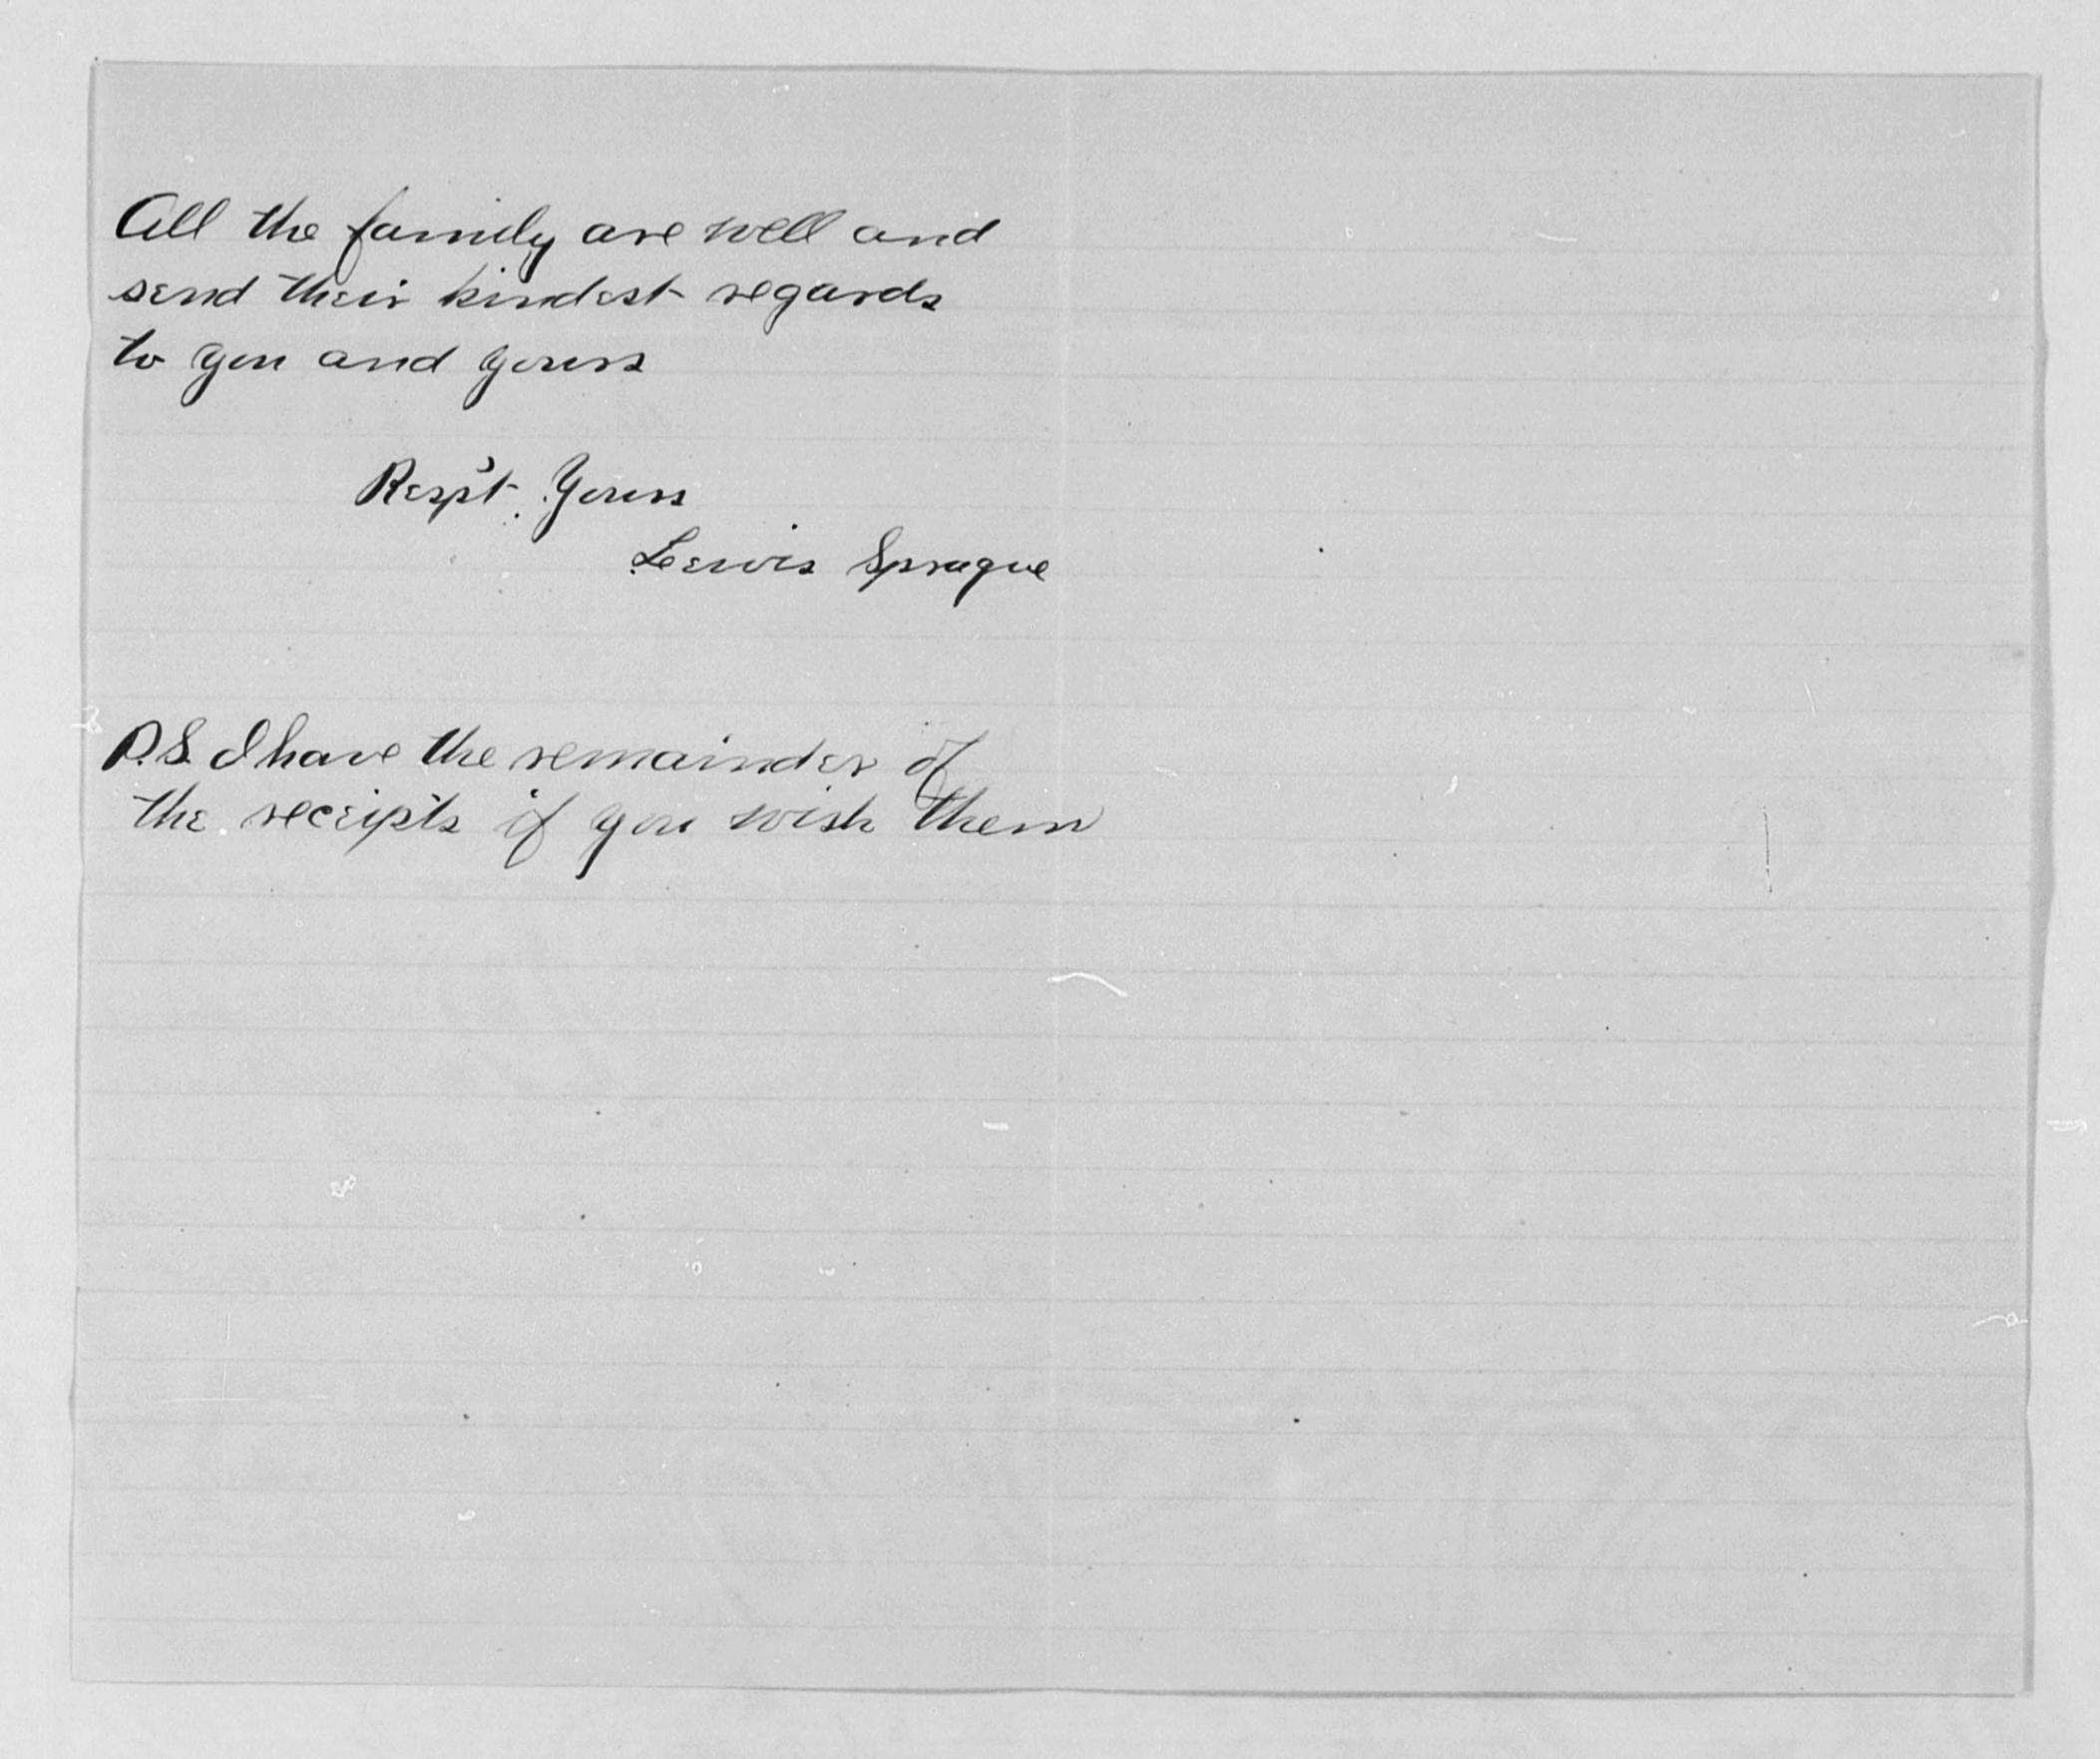 All the family are well and
send their kindest regards
to you and yours
Resp't. Yours
Lewis Sprague
P.S. I have the remainder of
the receipts if you wish them